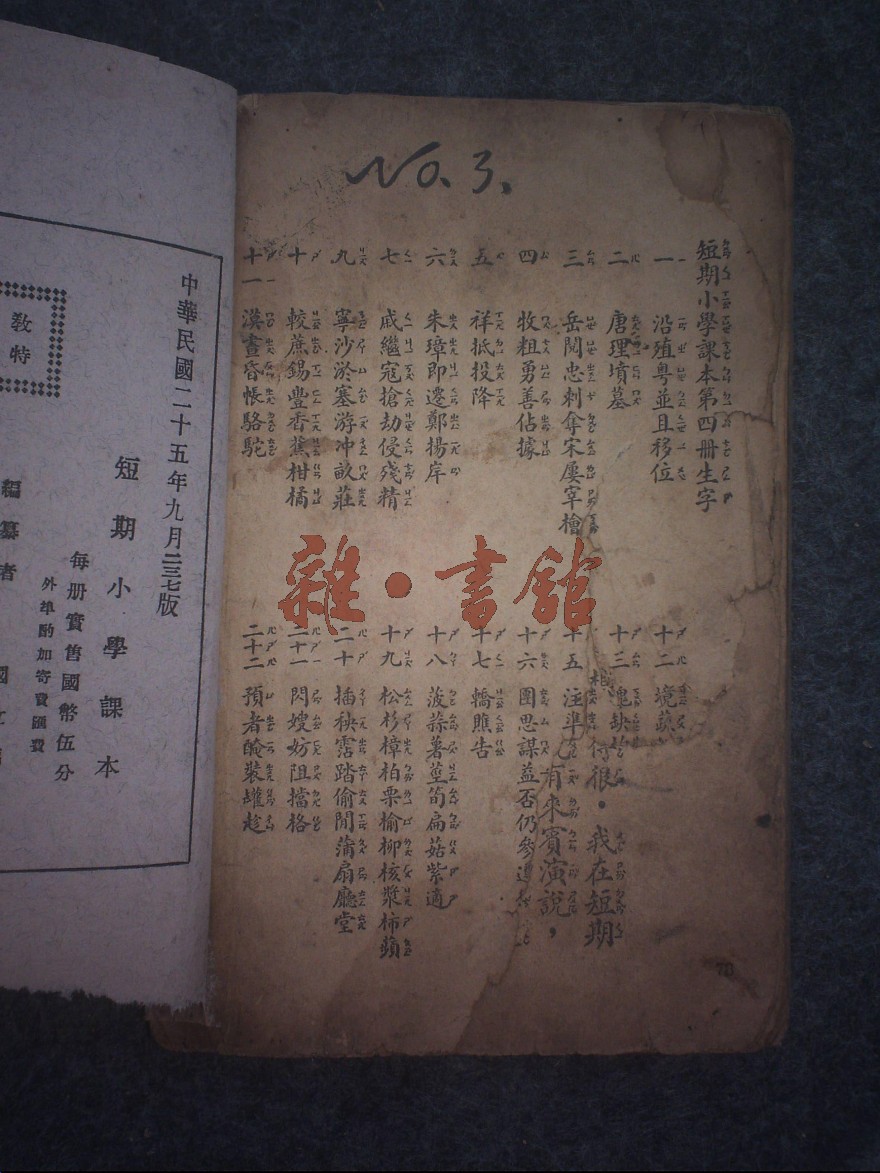 No. 3.
短期小學課本第四冊生字
一 沿殖粵並且移位
二 唐理墳墓
三 岳閱忠刺奪宋屢宰檜
四 牧粗勇善佔據
五 祥抵投降
六 朱璋即遷鄭揚岸
七 戚繼寇搶劫侵殘精
九 寧沙淤塞游冲畝莊
十 較蔗錫豐香蕉柑橘
十一 漢畫昏帳駱駝
十二 境蔬
十三 塊缺
十五 注準
十六 圍思謀益否仍參
十七 轎瞧告
十八 菠蒜薯莖筍扁菇紫適
十九 松杉樟柏栗榆柳核漿柿蘋
二十 插秧霑踏偷閒蒲扇廳堂
二十一 閃嫂妨阻擋格
二十二 預者醃裝罐趁
得很。我在短期
有來賓演說，
70
雜·書館
中華民國二十五年九月二三七版
短期小學課本
每冊實售國幣伍分
外埠酌加寄費匯費
編纂者
教特